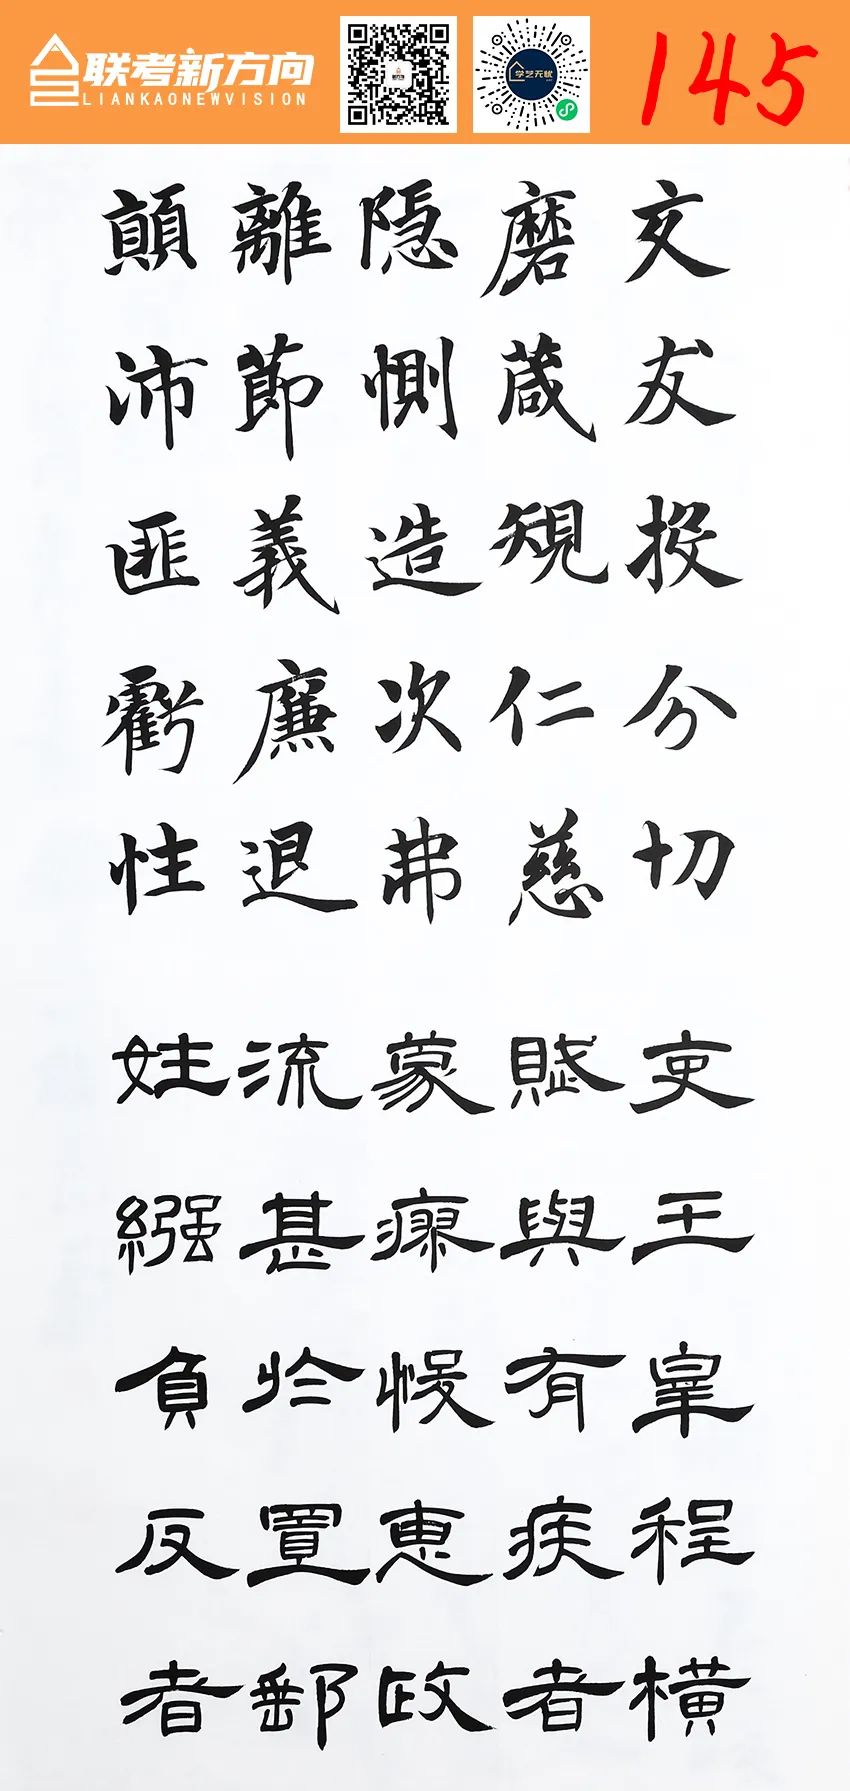 联考新方向
LIANKAONEWVISION
学艺无忧
145
交友投分切
磨葴規仁慈
隐惻造次弗
離節義廉退
顛沛匪虧性
吏王皋程橫
賦與有疾者
蒙瘳悛恵政
流甚於置郵
姓繦負反者